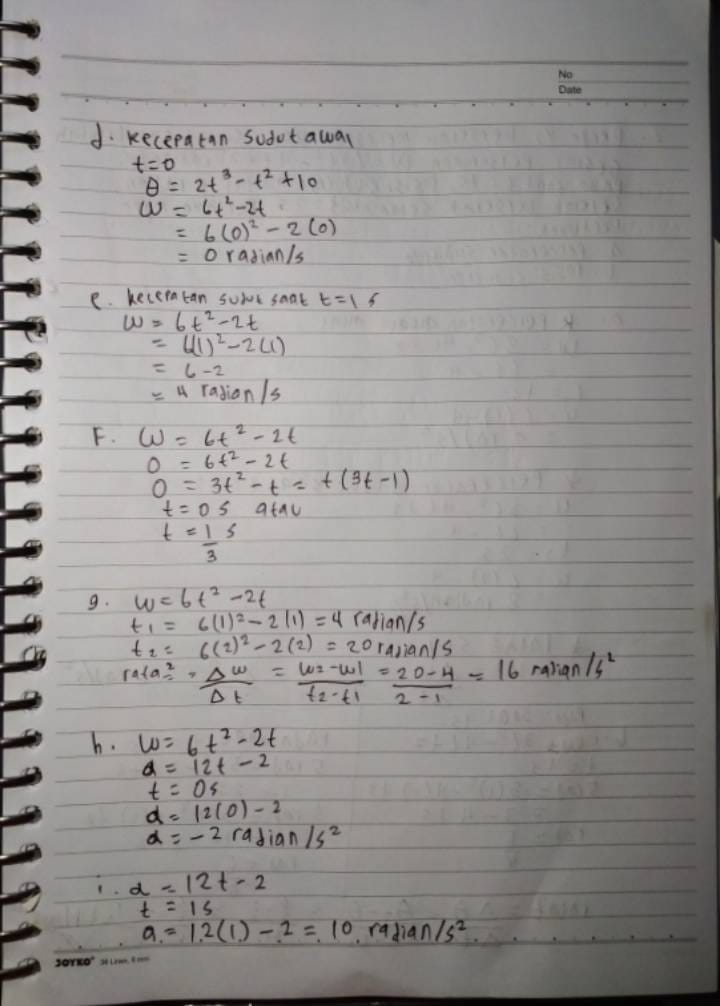 No
Date
d. Kecepatan sudut awal
t=0
θ = 2t³ - t² + 10
ω = 6t² - 2t
= 6(0)² - 2(0)
= 0 radian/s
e. kecepatan sudut saat t=1 s
ω = 6t² - 2t
= 6(1)² - 2(1)
= 6 - 2
= 4 radian/s
F. ω = 6t² - 2t
0 = 6t² - 2t
0 = 3t² - t = t(3t-1)
t = 0 s atau
t = 1/3 s
g. ω = 6t² - 2t
t₁ = 6(1)² - 2(1) = 4 radian/s
t₂ = 6(2)² - 2(2) = 20 radian/s
rata² = Δω/Δt = ω2-ω1/t2-t1 = 20-4/2-1 = 16 radian/s²
h. ω = 6t² - 2t
α = 12t - 2
t = 0s
α = 12(0) - 2
α = -2 radian/s²
i. α = 12t - 2
t = 1s
α = 12(1) - 2 = 10 radian/s²
JOYKO 36 Lines, 6 mm